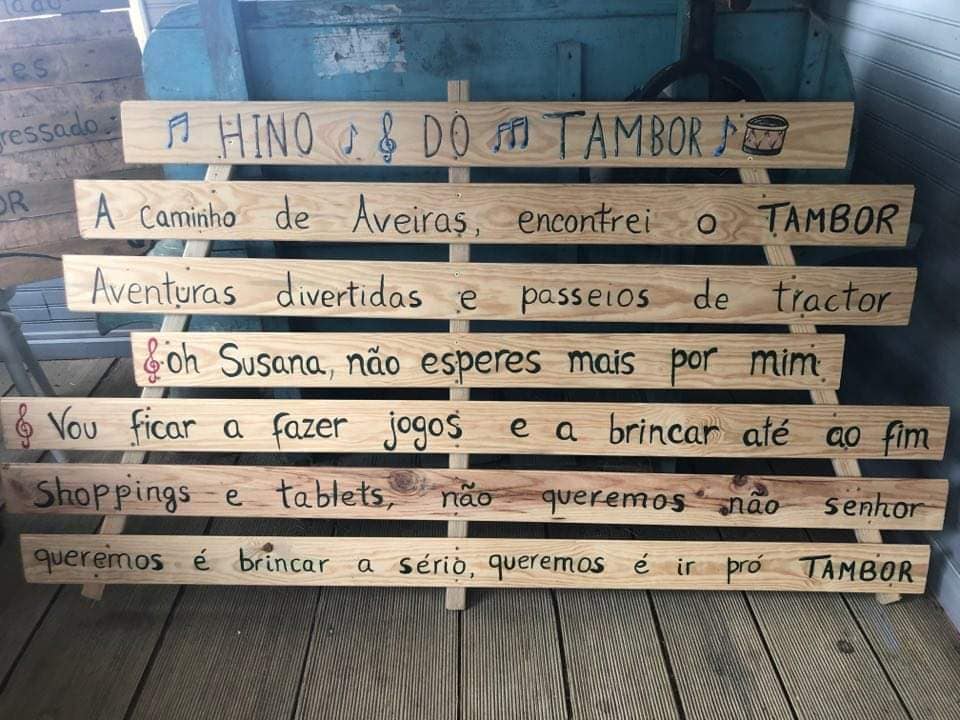 ado
tes
gressado:
OR
HINO DO TAMBOR
A caminho de Aveiras, encontrei o TAMBOR
Aventuras divertidas e passeios de tractor
oh Susana, não esperes mais por mim
Vou ficar a fazer jogos e a brincar até ao fim
Shoppings e tablets, não queremos não senhor
queremos é brincar a sério, queremos é ir pró TAMBOR